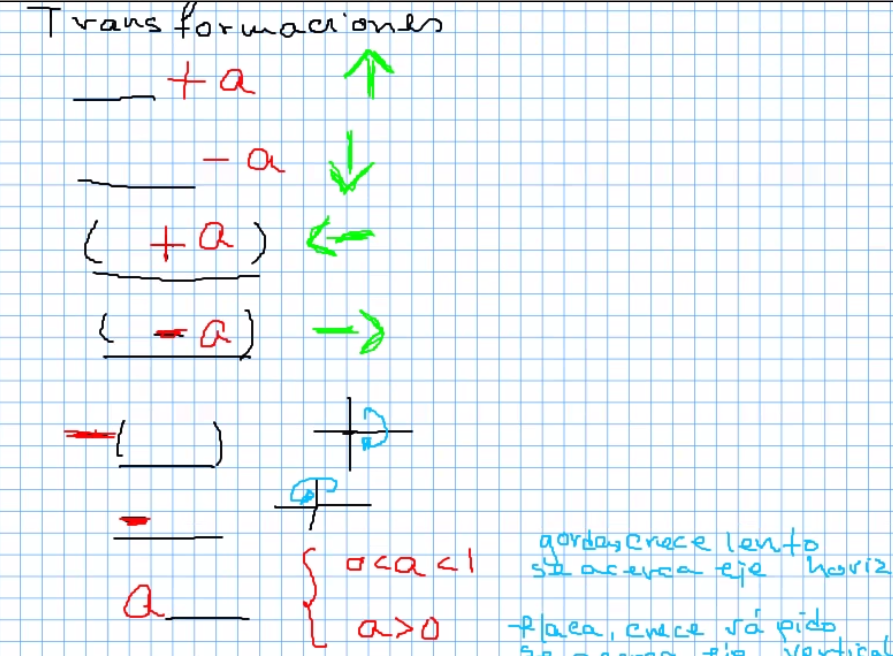 Transformaciones
___ + a ↑
___ - a ↓
( + a ) ←
( - a ) →
- ( )
- ___
gorda, crece lento
0<a<1 se acerca eje horiz
a ___ {
a>0 flaca, crece rápido
se acerca eje vertical